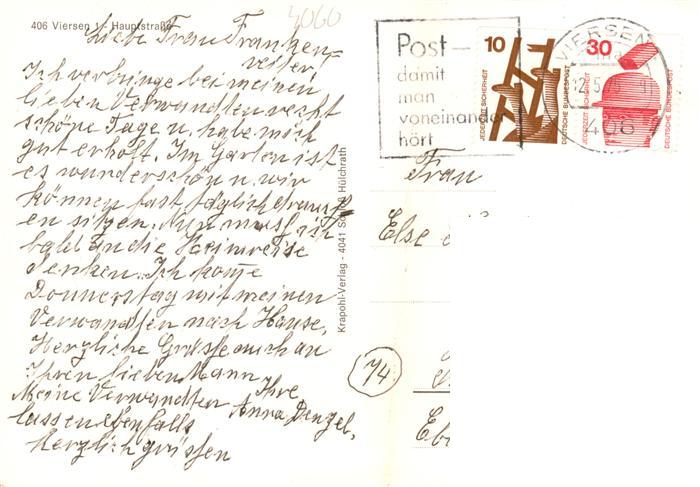 406 Viersen 1 - Hauptstraße
4060
Liebe Frau Franzen-
Ich verbringe bei meinen
lieben Verwandten recht
schöne Tage u. habe mich
gut erholt. Im Garten ist
es wunderschön u. wir
können fast täglich drauss
en sitzen. Nun muss ich
bald an die Heimreise
denken. Ich komme
Donnerstag mit meinen
Verwandten nach Hause.
Herzliche Grüsse auch an
Ihren lieben Mann
Ihre
Meine Verwandten Anna
lassen ebenfalls
herzlich grüssen
Krapohl-Verlag - 4041 Schloß Hülchrath
Post -
damit
man
voneinander
hört
VIERSEN
406
10
JEDERZEIT SICHERHEIT
DEUTSCHE BUNDESPOST
30
JEDERZEIT SICHERHEIT
DEUTSCHE BUNDESPOST
Frau
Else
74